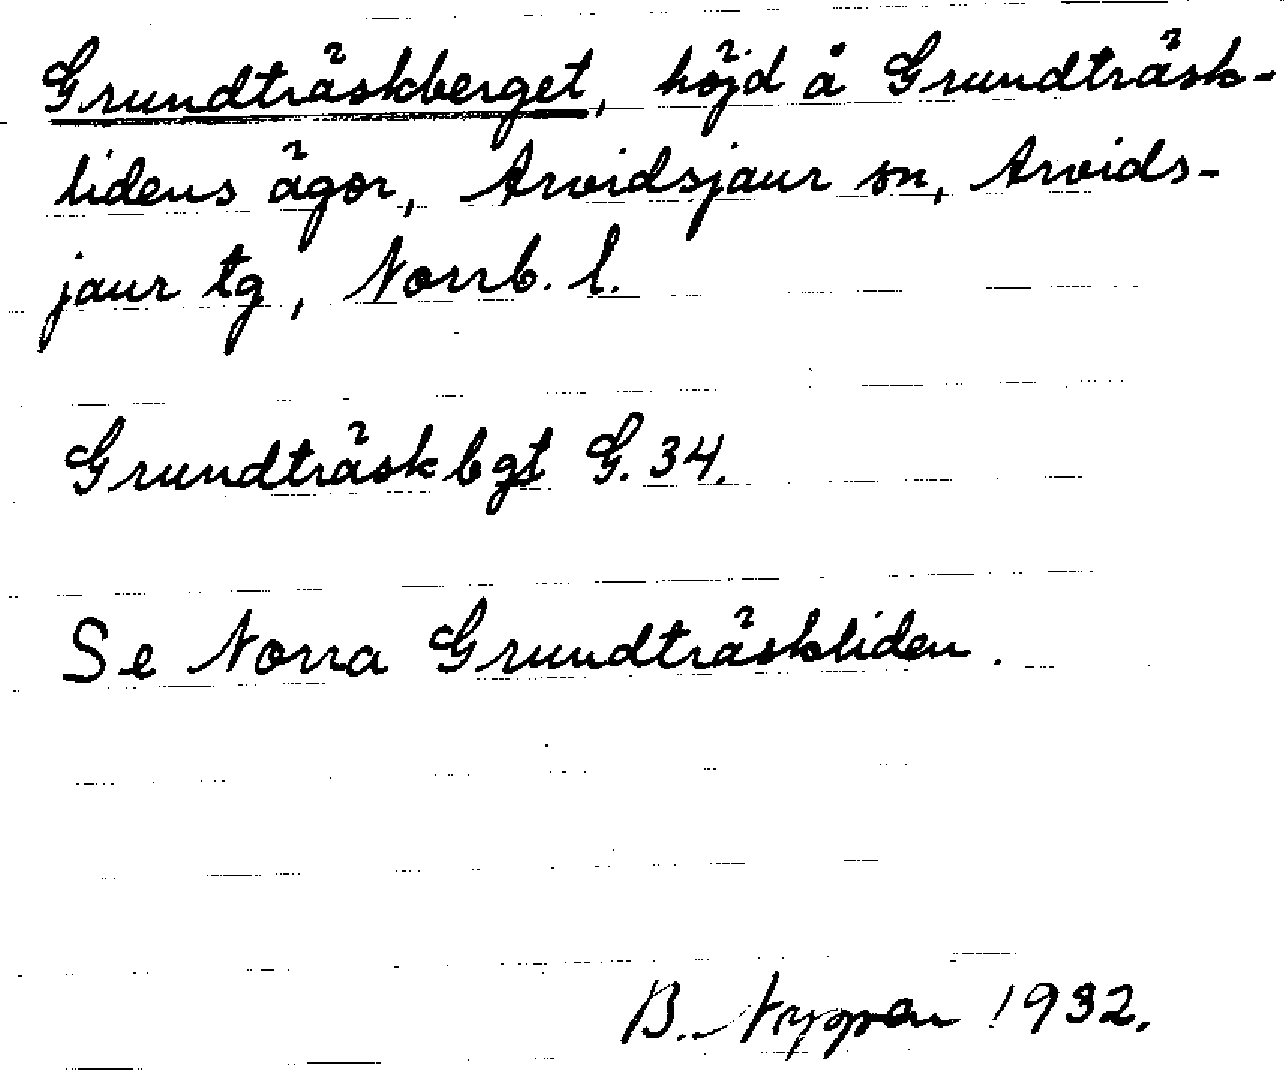 Grundträskberget, höjd å Grundträsk-
lidens ägor, Arvidsjaur sn, Arvids-
jaur tg, Norrb. l.
Grundträskbgt G. 34.
Se Norra Grundträskliden.
B. 1932.